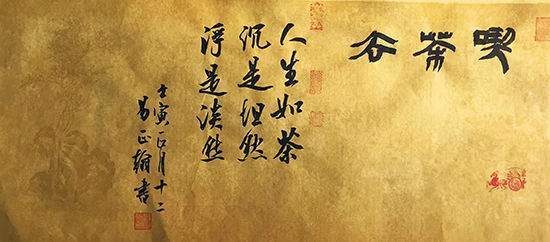 喫茶去
人生如茶
沉是坦然
浮是淡然
壬寅正月十二
易正翰書